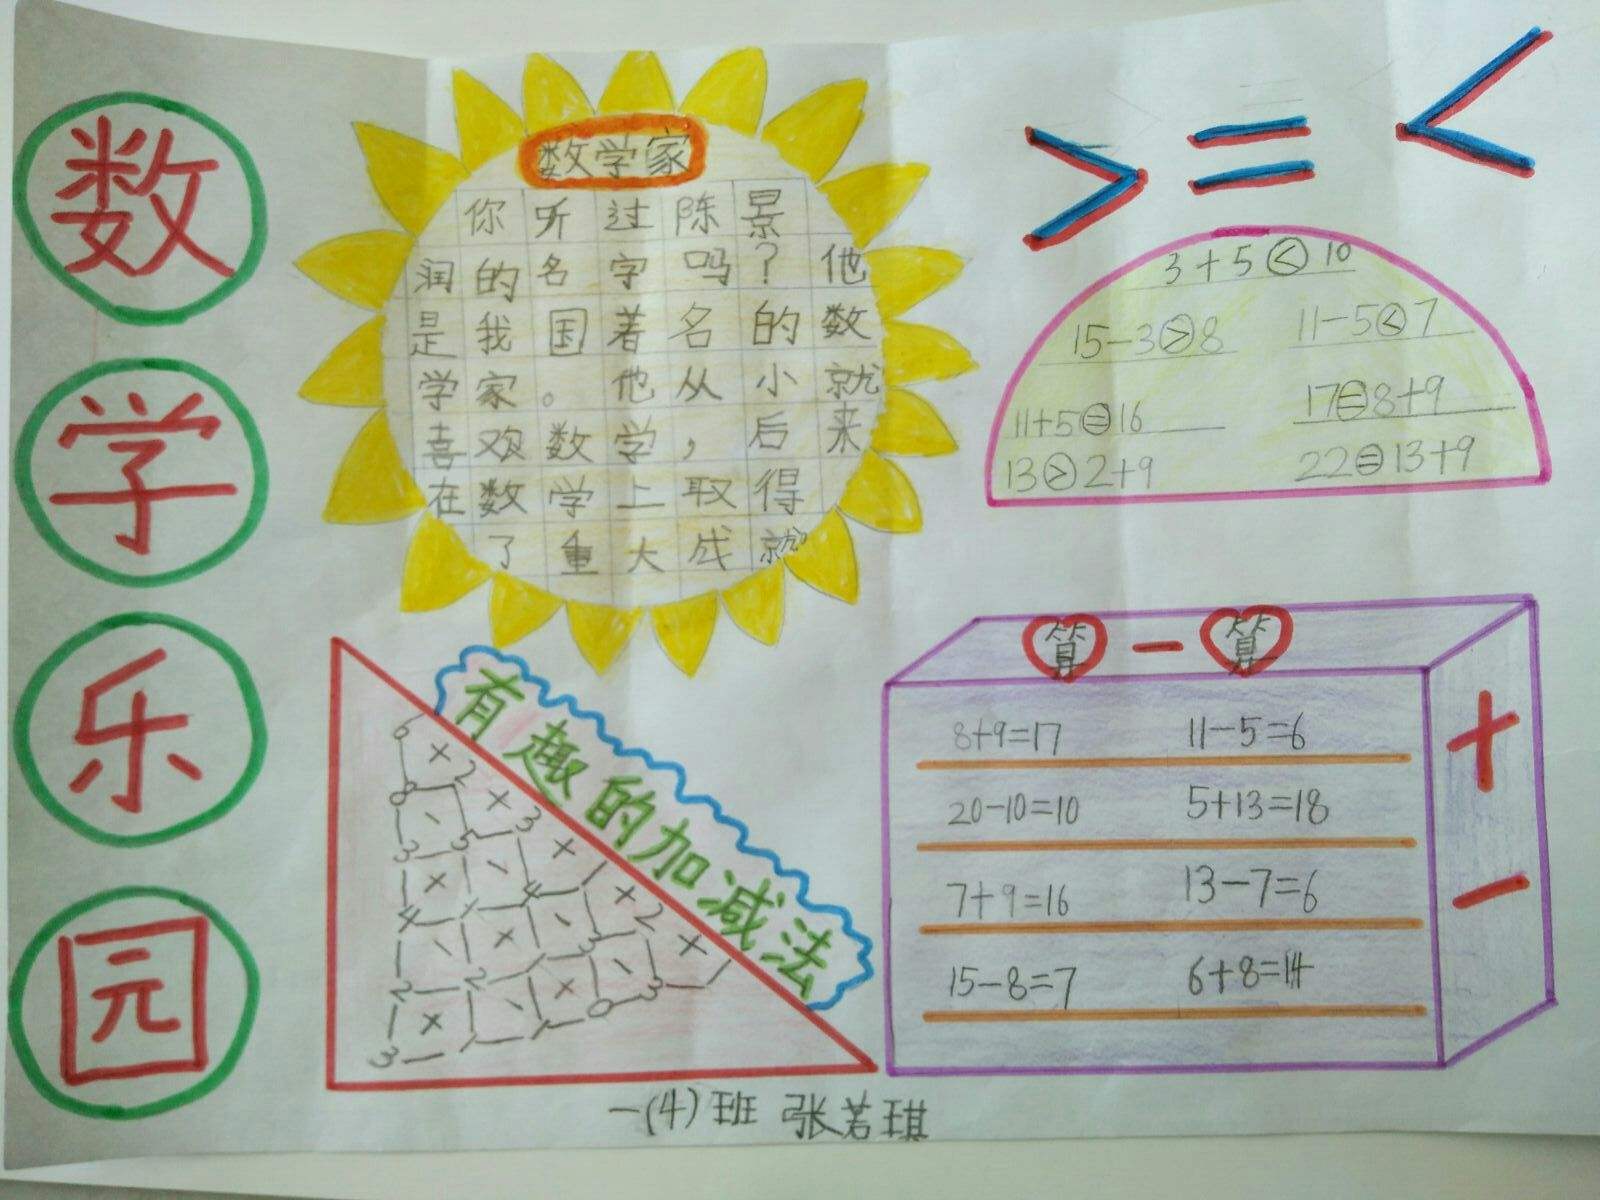 数
学
乐
园
数学家
你听过陈景
润的名字吗？他
是我国着名的数
学家。他从小就
喜欢数学，后来
在数学上取得
了重大成就
> = <
3+5<10
15-3>8 11-5<7
11+5=16 17=8+9
13>2+9 22=13+9
有趣的加减法
算一算
8+9=17 11-5=6
20-10=10 5+13=18
7+9=16 13-7=6
15-8=7 6+8=14
+
-
一(4)班 张若琪